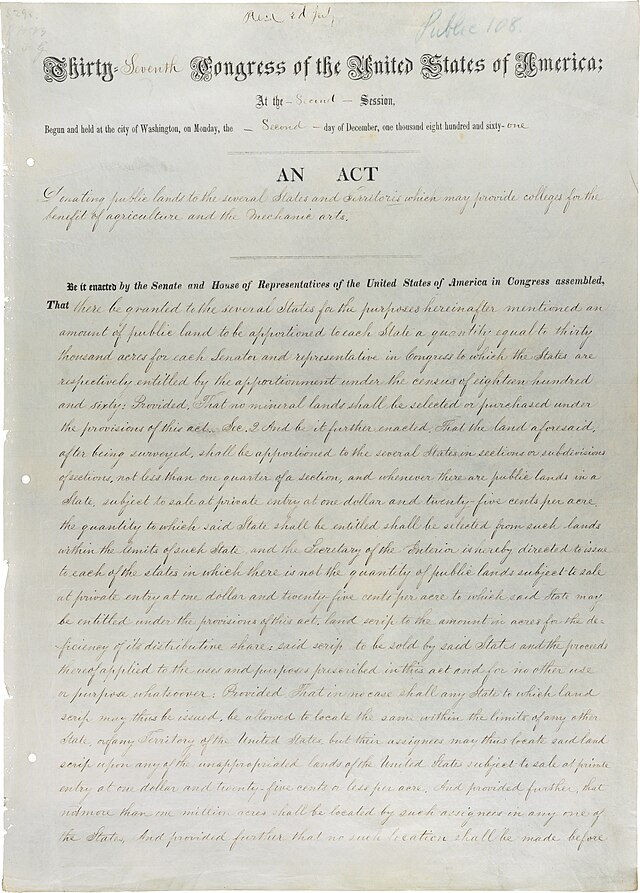 Public 108
Thirty-Seventh Congress of the United States of America;
At the - Second - Session,
Begun and held at the city of Washington, on Monday, the - Second - day of December, one thousand eight hundred and sixty-one
AN ACT
Donating public lands to the several States and Territoris which may provide colleges for the
benefit of agriculture and the Mechanic arts.
Be it enacted by the Senate and House of Representatives of the United States of America in Congress assembled,
That there be granted to the several States for the purposes hereinafter mentioned an
amount of public land to be apportioned to each State a quantity equal to thirty
thousand acres for each Senator and representative in Congress to which the States are
respectively entitled by the apportionment under the census of eighteen hundred
and sixty: Provided, That no mineral lands shall be selected or purchased under
the provisions of this act. Sec. 2 And be it further enacted, That the land aforesaid,
after being surveyed, shall be apportioned to the several States in sections or subdivisions
of sections, not less than one quarter of a section, and whenever there are public lands in a
State, subject to sale at private entry at one dollar and twenty-five cents per acre,
the quantity to which said State shall be entitled shall be selected from such lands
within the limits of such State, and the Secretary of the Interior is hereby directed to issue
to each of the states in which there is not the quantity of public lands subject to sale
at private entry at one dollar and twenty-five cents per acre to which said State may
be entitled under the provisions of this act, land scrip to the amount in acres for the de-
ficiency of its distributive share: said scrip to be sold by said States and the proceeds
thereof applied to the uses and purposes prescribed in this act and for no other use
or purpose whatsoever: Provided, That in no case shall any State to which land
scrip may thus be issued, be allowed to locate the same within the limits of any other
State, or any Territory of the United States, but their assignees may thus locate said land
scrip upon any of the unappropriated lands of the United States subject to sale at private
entry at one dollar and twenty-five cents or less per acre. And provided further, that
not more than one million acres shall be located by such assignees in any one of
the States. And provided further that no such location shall be made before